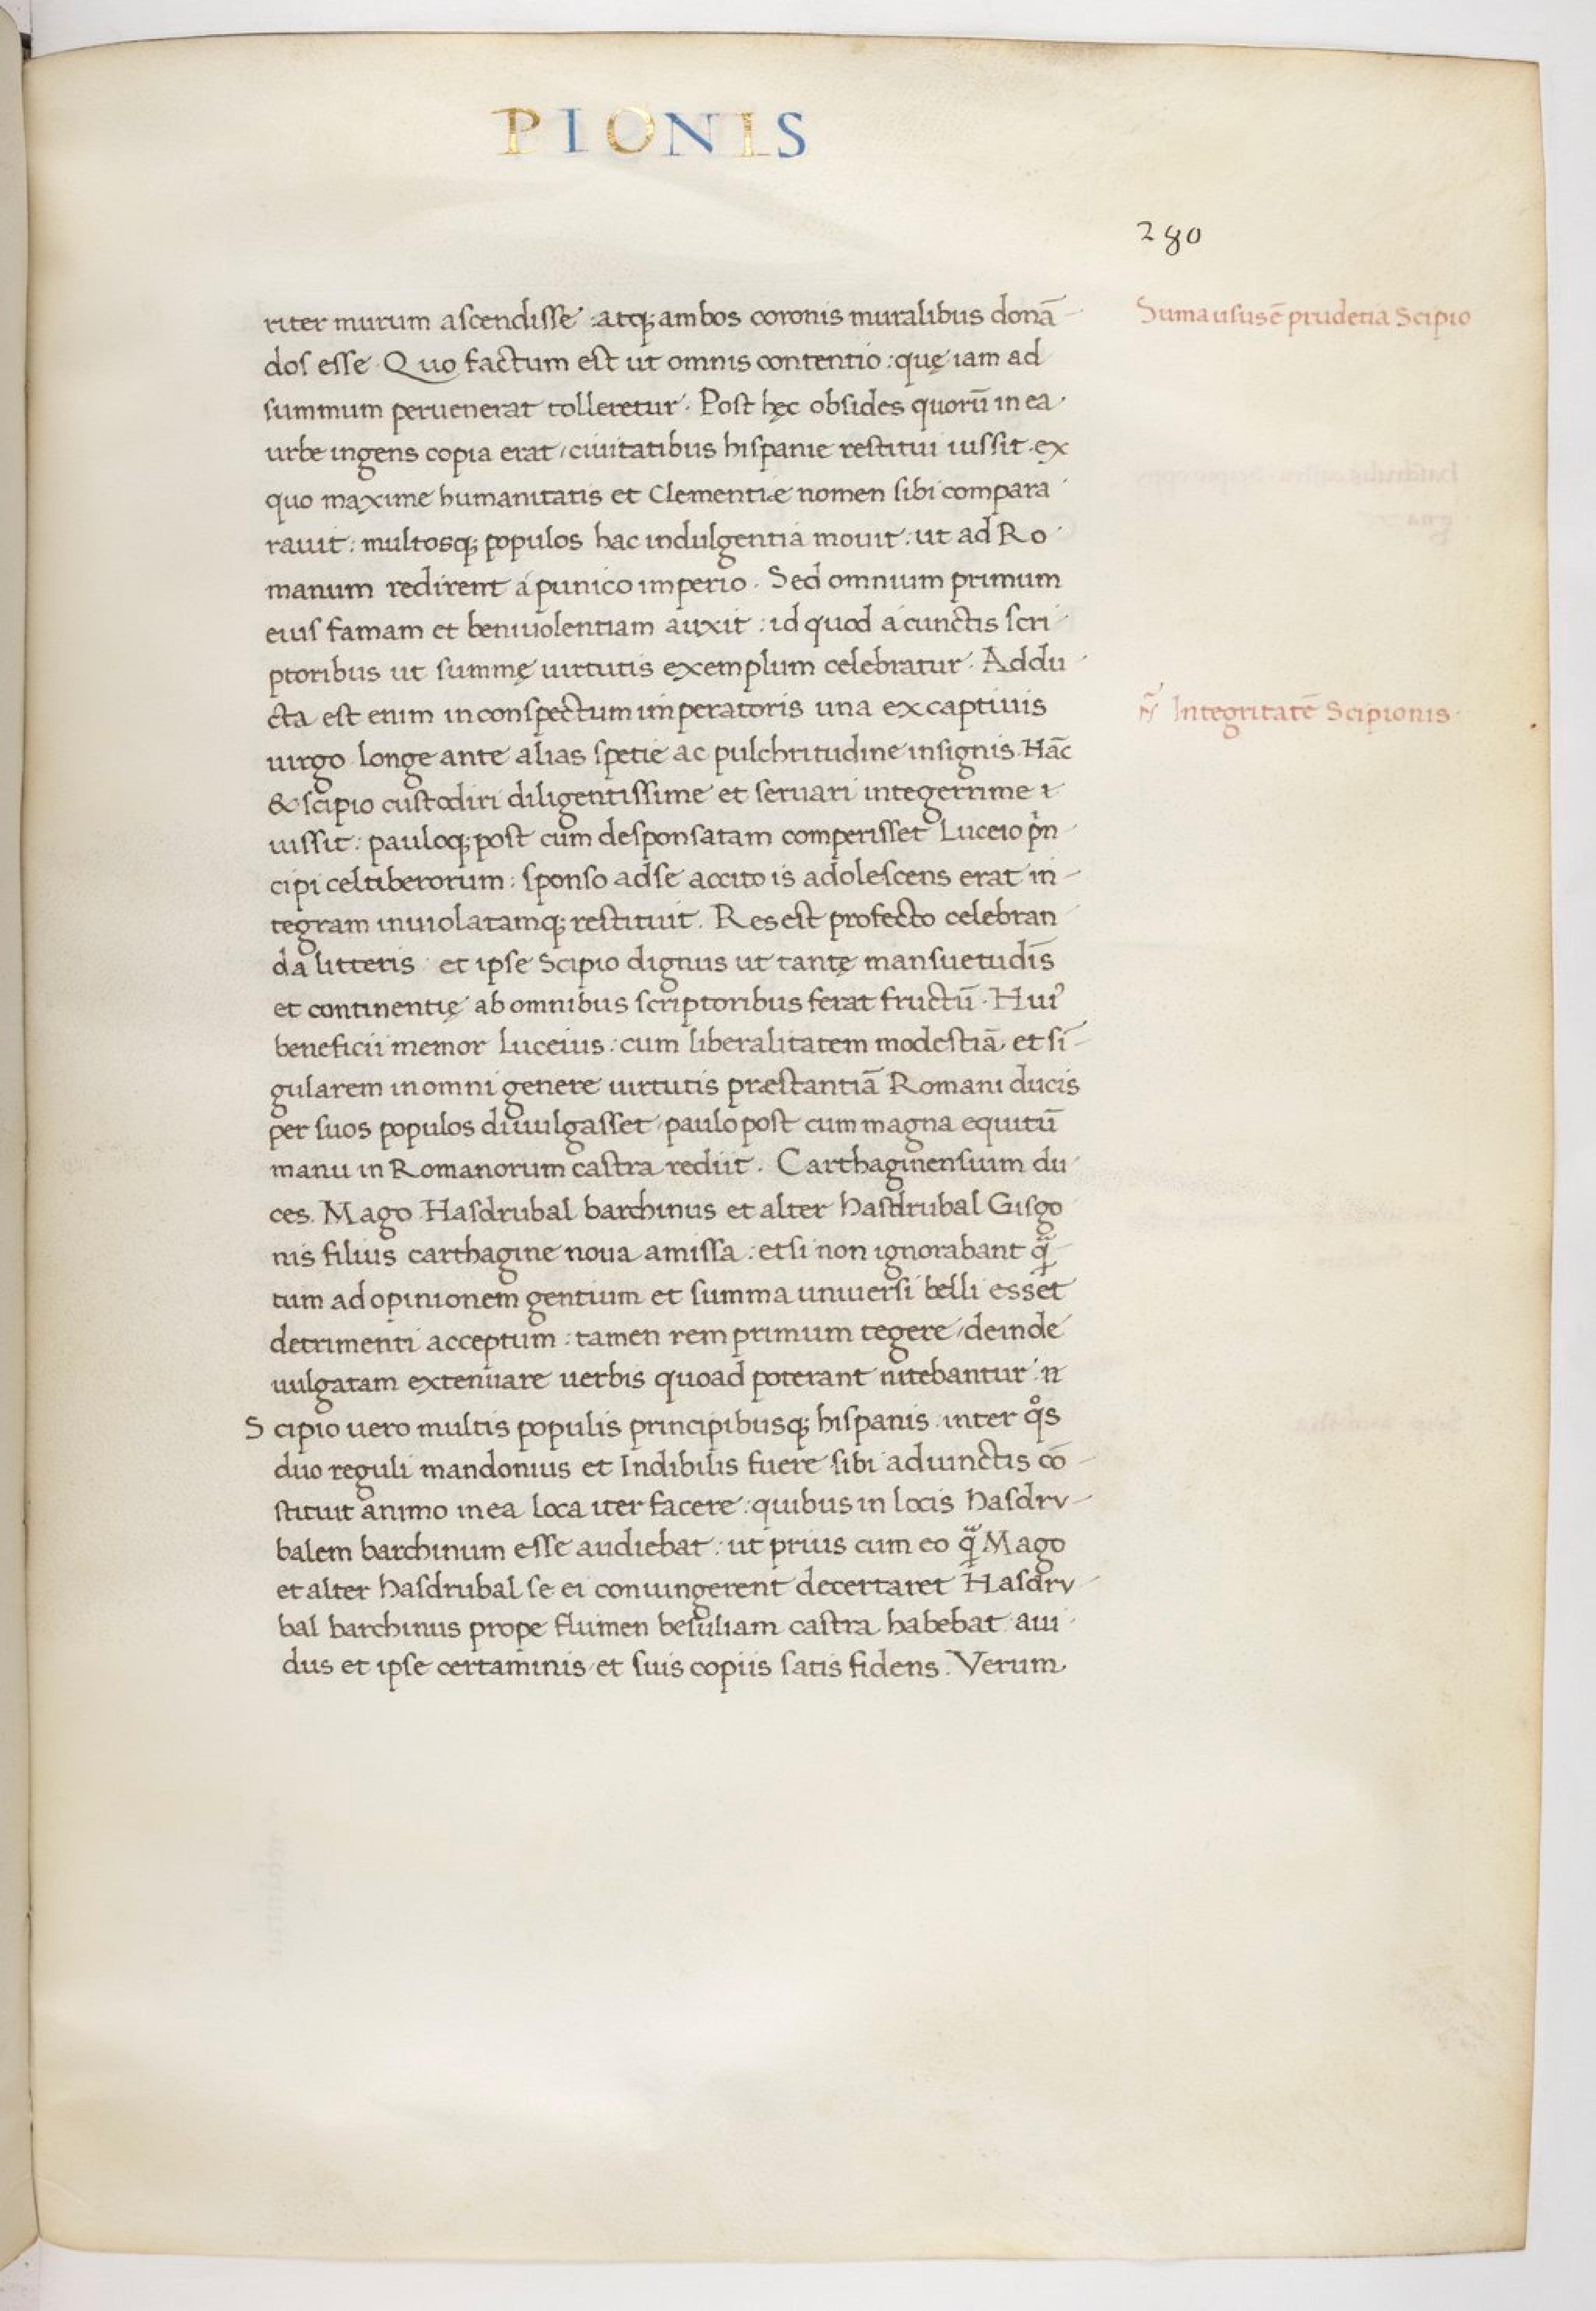 PIONIS
280
riter murum ascendisse : atq; ambos coronis muralibus donā
dos esse. Quo factum est ut omnis contentio : quę iam ad
summum peruenerat tolleretur. Post hęc obsides quorū in ea
urbe ingens copia erat, ciuitatibus hispanie restitui iussit. ex
quo maxime humanitatis et Clementiæ nomen sibi compara
rauit : multosq; populos hac indulgentia mouit : ut ad Ro
manum redirent a punico imperio. Sed omnium primum
eius famam et beniuolentiam auxit : id quod a cunctis scri
ptoribus ut summę uirtutis exemplum celebratur. Addu
cta est enim in conspectum imperatoris una ex captiuis
uirgo longe ante alias spetie ac pulchritudine insignis. Hāc
& scipio custodiri diligentissime et seruari integerrime
iussit : pauloq; post cum desponsatam comperisset Luceio p̄n
cipi celtiberorum : sponso ad se accito is adolescens erat in
tegram inuiolatamq; restituit. Res est profecto celebran
da litteris et ipse Scipio dignus ut tantę mansuetudīs
et continentię ab omnibus scriptoribus ferat fructū. Huiꝰ
beneficii memor Luceius : cum liberalitatem modestiā et sī
gularem in omni genere uirtutis præstantiā Romani ducis
per suos populos diuulgasset, paulo post cum magna equitū
manu in Romanorum castra rediit. Carthaginensium du
ces. Mago Hasdrubal barchinus et alter hasdrubal Gisgo
nis filius carthagine noua amissa : etsi non ignorabant q̄
tum ad opinionem gentium et summa uniuersi belli esset
detrimenti acceptum : tamen rem primum tegere, deinde
uulgatam extenuare uerbis quoad poterant nitebantur
Scipio uero multis populis principibusq; hispanis inter q̊s
duo reguli mandonius et Indibilis fuere sibi adiunctis cō
stituit animo in ea loca iter facere : quibus in locis hasdrv
balem barchinum esse audiebat : ut prius cum eo q̄ Mago
et alter hasdrubal se ei coniungerent decertaret Hasdrv
bal barchinus prope flumen besuliam castra habebat aui
dus et ipse certaminis et suis copiis satis fidens. Verum
Suma usus ē prudētia Scipio
Integritatē Scipionis